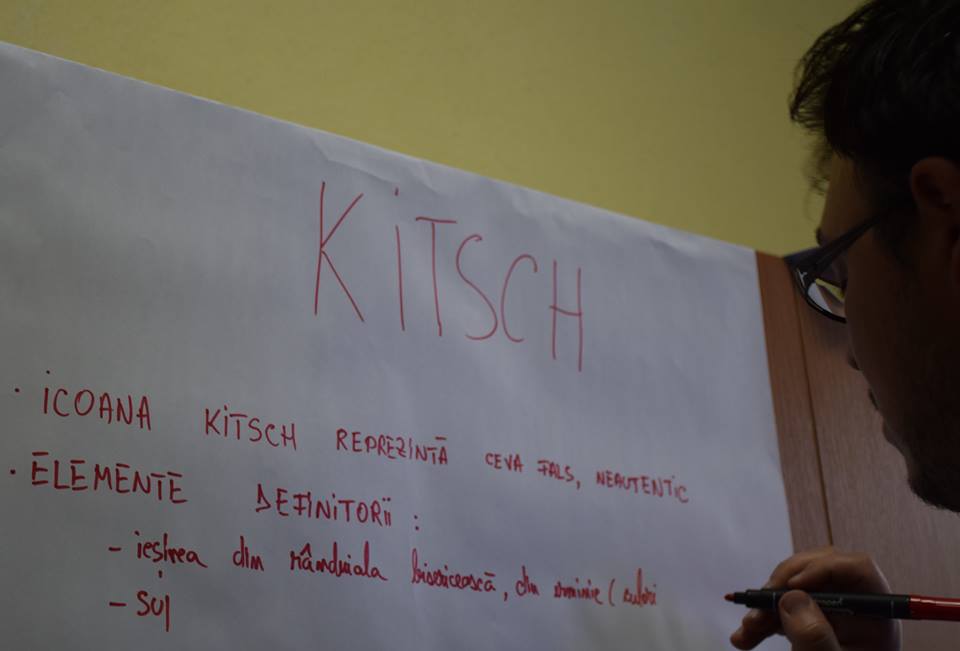 KITSCH
· ICOANA KITSCH REPREZINTĂ CEVA FALS, NEAUTENTIC
· ELEMENTE DEFINITORII :
- ieșirea din rânduiala bisericească, din erminie ( culori
- SU